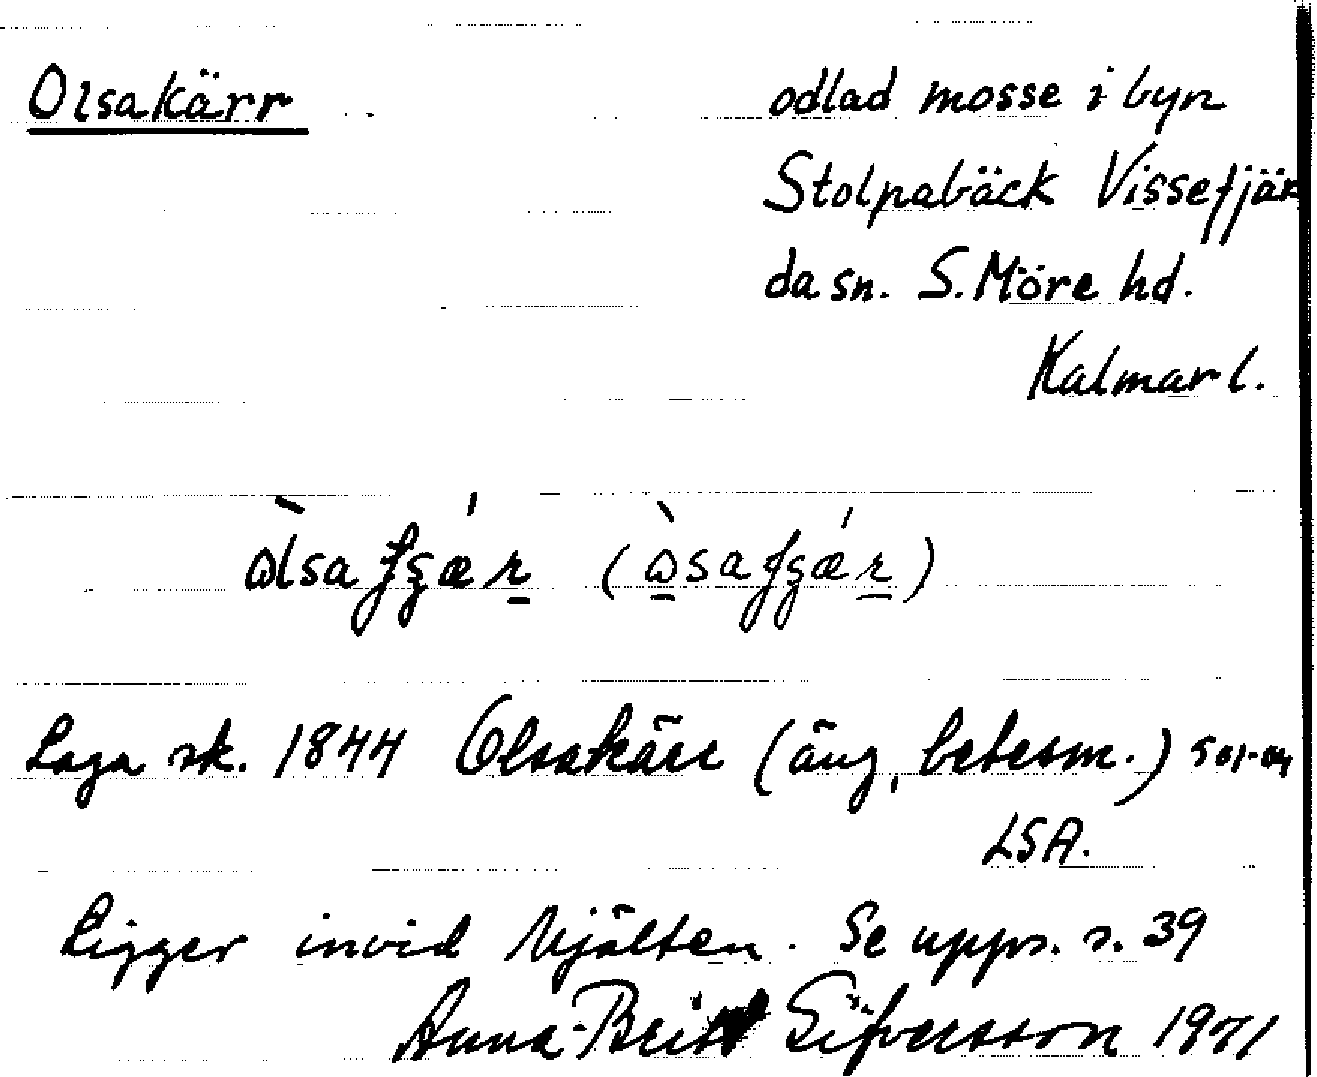 Olsakärr odlad mosse i byn
Stolpabäck Vissefjär
da sn. S. Möre hd.
Kalmar l.
Laga sk. 1844 Olsakärr (äng, betesm.) 501-04
LSA.
Ligger invid Mjälten. Se upps. s. 39
Anna-Britt Sifversson 1971